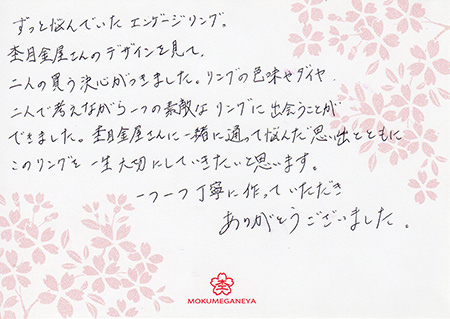 ずっと悩んでいたエンゲージリング。
杢目金屋さんのデザインを見て、
二人の買う決心がつきました。リングの色味やダイヤ、
二人で考えながら一つの素敵なリングに出会うことが
できました。杢目金屋さんに一緒に通って悩んだ思い出とともに
このリングを一生大切にしていきたいと思います。
一つ一つ丁寧に作っていただき
ありがとうございました。
杢
MOKUMEGANEYA